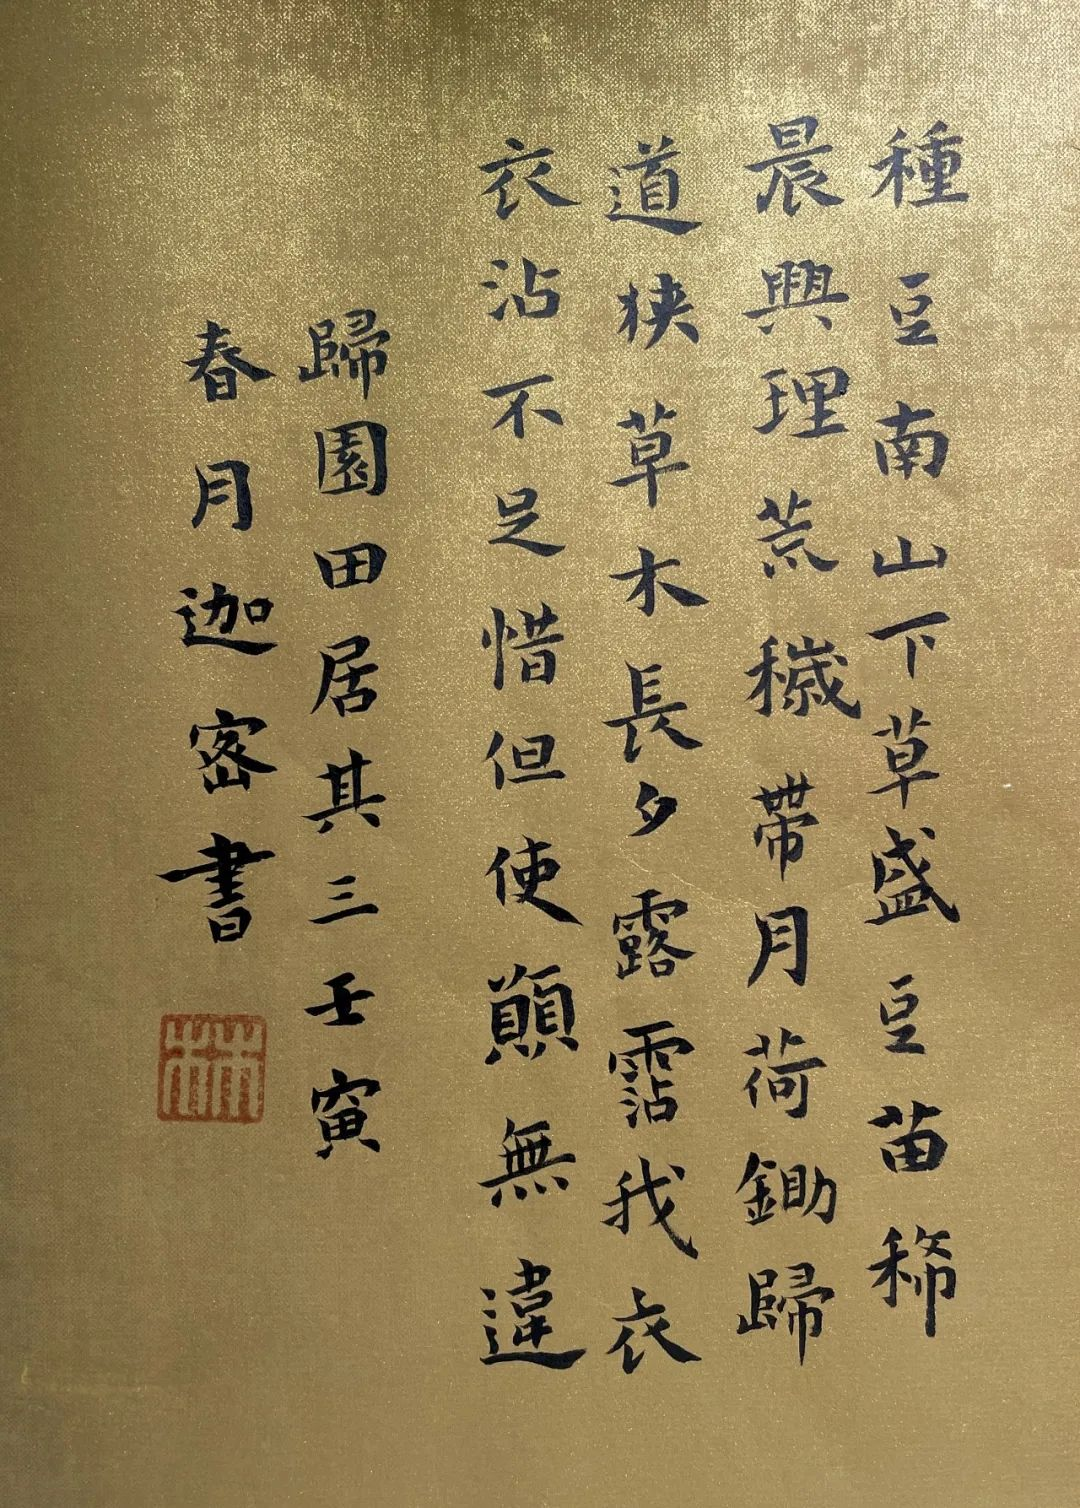 種豆南山下草盛豆苗稀
晨興理荒穢帶月荷鋤歸
道狹草木長夕露霑我衣
衣沾不足惜但使願無違
歸園田居其三壬寅
春月迦密書
林